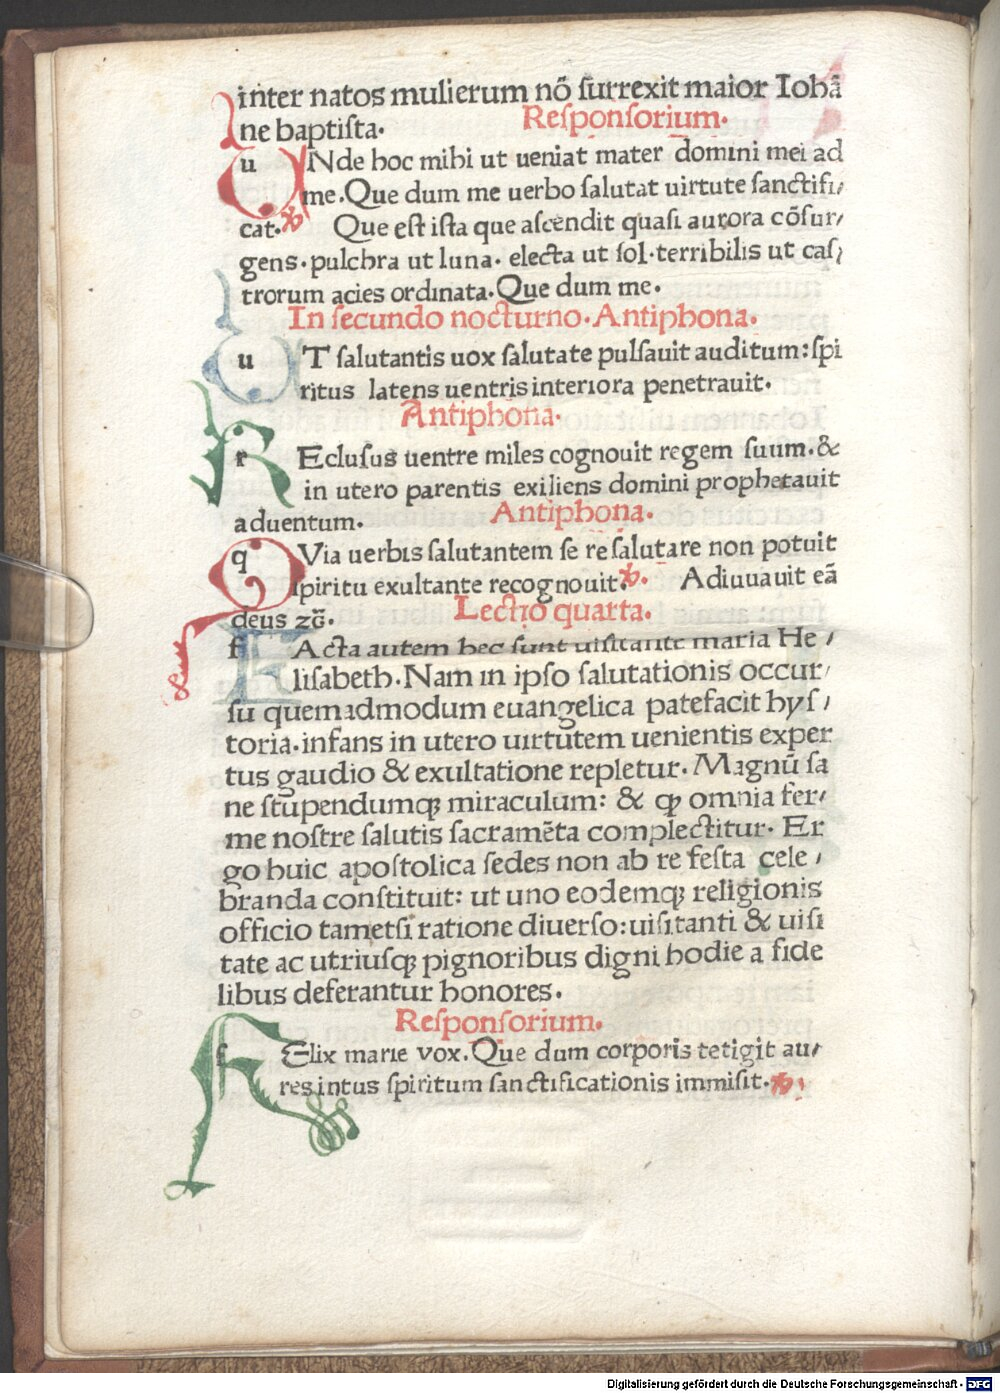 inter natos mulierum nõ ſurrexit maior Iohã
ne baptiſta. Reſponſorium.
UNde hoc mihi ut ueniat mater domini mei ad
me. Que dum me uerbo ſalutat uirtute ſanctifi⸗
cat. ℣. Que eſt iſta que aſcendit quaſi aurora cõſur⸗
gens. pulchra ut luna. electa ut ſol. terribilis ut caſ⸗
trorum acies ordinata. Que dum me.
In ſecundo nocturno. Antiphona.
UT ſalutantis uox ſalutate pulſauit auditum: ſpi
ritus latens uentris interiora penetrauit.
Antiphona.
REcluſus uentre miles cognouit regem ſuum. &
in utero parentis exiliens domini prophetauit
aduentum. Antiphona.
QVia uerbis ſalutantem ſe reſalutare non potuit
ſpiritu exultante recognouit. ℣. Adiuuauit eã
deus zc̃. Lectio quarta.
FActa autem hec ſunt uiſitante maria He⸗
liſabeth. Nam in ipſo ſalutationis occur⸗
ſu quemadmodum euangelica patefacit hyſ⸗
toria. infans in utero uirtutem uenientis exper
tus gaudio & exultatione repletur. Magnũ ſa
ne ſtupendumqꝫ miraculum: & ꝙ omnia fer⸗
me noſtre ſalutis ſacramẽta complectitur. Er
go huic apoſtolica ſedes non ab re feſta cele⸗
branda conſtituit: ut uno eodemqꝫ religionis
officio tametſi ratione diuerſo: uiſitanti & uiſi
tate ac utriuſqꝫ pignoribus digni hodie a fide
libus deferantur honores.
Reſponſorium.
FElix marie vox. Que dum corporis tetigit au⸗
res intus ſpiritum ſanctificationis immiſit. ℣.
Digitalisierung gefördert durch die Deutsche Forschungsgemeinschaft - DFG